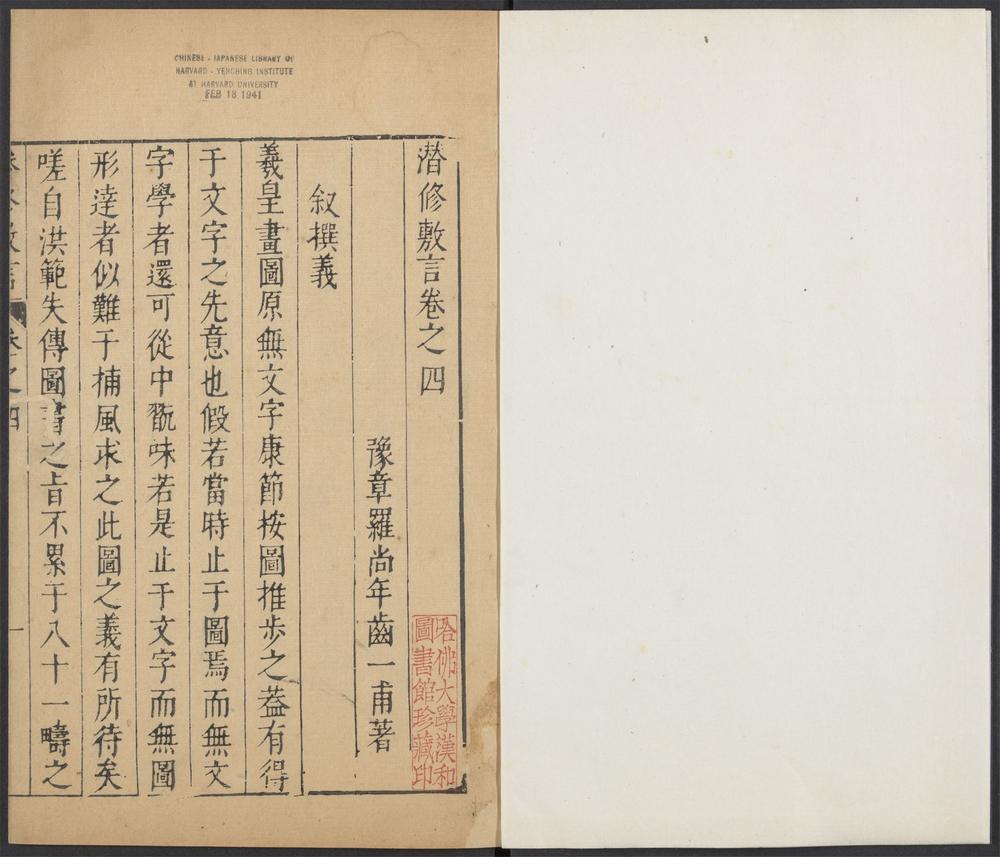 CHINESE - JAPANESE LIBRARY OF
HARVARD - YENCHING INSTITUTE
AT HARVARD UNIVERSITY
FEB 18 1941
潜修敷言卷之四
豫章羅尚年齒一甫著
叙撰義
羲皇畫圖原無文字康節按圖推步之葢有得
于文字之先意也假若當時止于圖焉而無文
字學者還可從中翫味若是止于文字而無圖
形達者似難于捕風求之此圖之義有所待矣
嗟自洪範失傳圖書之旨不累于八十一疇之
卷之四
一
哈佛大學漢和
圖書館珍藏印